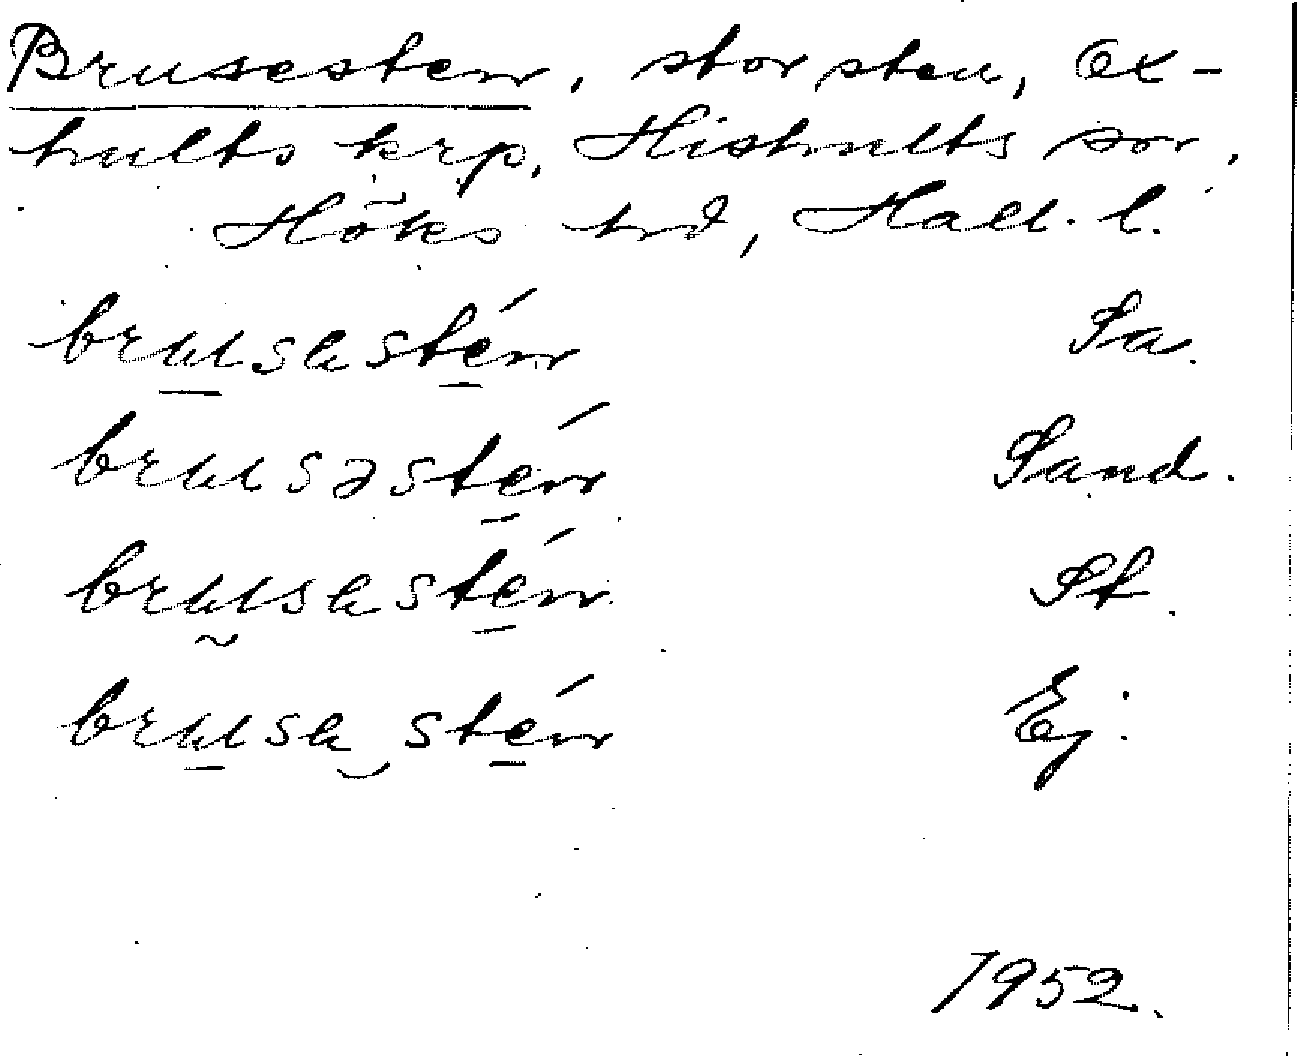 Brusesten, stor sten, Ox-
hults krp, Hishults sn,
Höks hd, Hall. l.
brusasten Sa.
brusəsten Sand.
brusasten St.
brusa sten Ej.
1952.